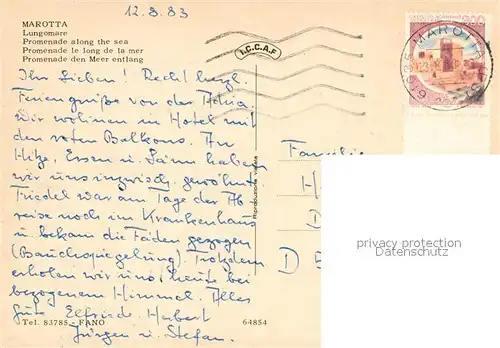 12.8.83
MAROTTA
Lungomare
Promenade along the sea
Promenade le long de la mer
Promenade den Meer entlang
I.C.C.A.F
MAROTTA
Ihr Lieben! Recht herzl.
Feriengrüße von der Adria.
Wir wohnen in Hotel mit
den roten Balkons. An
Hitze, Essen u. Lärm haben
wir uns inzwisch. gewöhnt.
Friedel war am Tage der Ab
reise noch im Krankenhaus
u. bekam die Fäden gezogen
(Bauchspiegelung). Trotzdem
erholen wir uns, heute bei
bezogenem Himmel. Alles
Gute Elfriede, Herbert
Jürgen u. Stefan.
Familie
H
D
D 5
Riproduzione vietata
Tel. 83785 - FANO
64854
privacy protection
Datenschutz